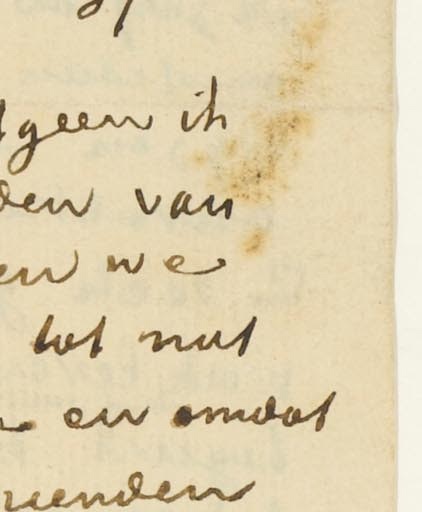 tgeen ik
den van
en we
tot nut
en omdat
rienden